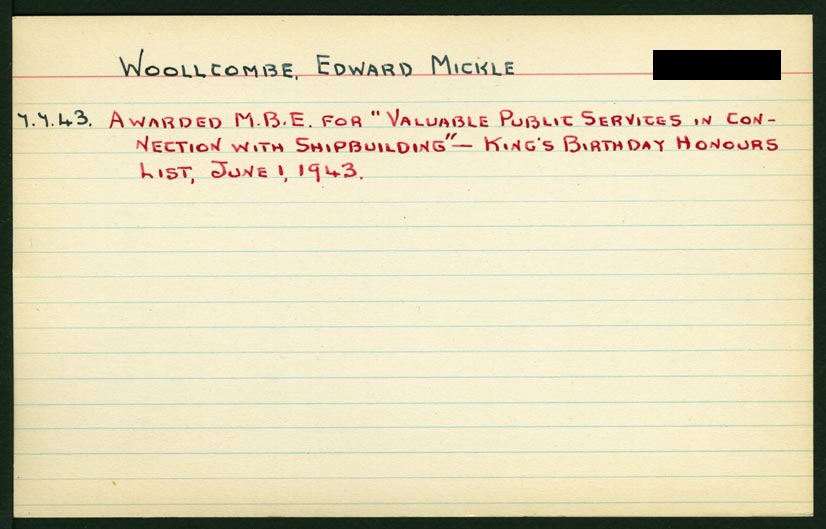 WOOLLCOMBE, EDWARD MICKLE
7.7.43. AWARDED M.B.E. FOR "VALUABLE PUBLIC SERVICES IN CON-
NECTION WITH SHIPBUILDING" — KING'S BIRTHDAY HONOURS
LIST, JUNE 1, 1943.